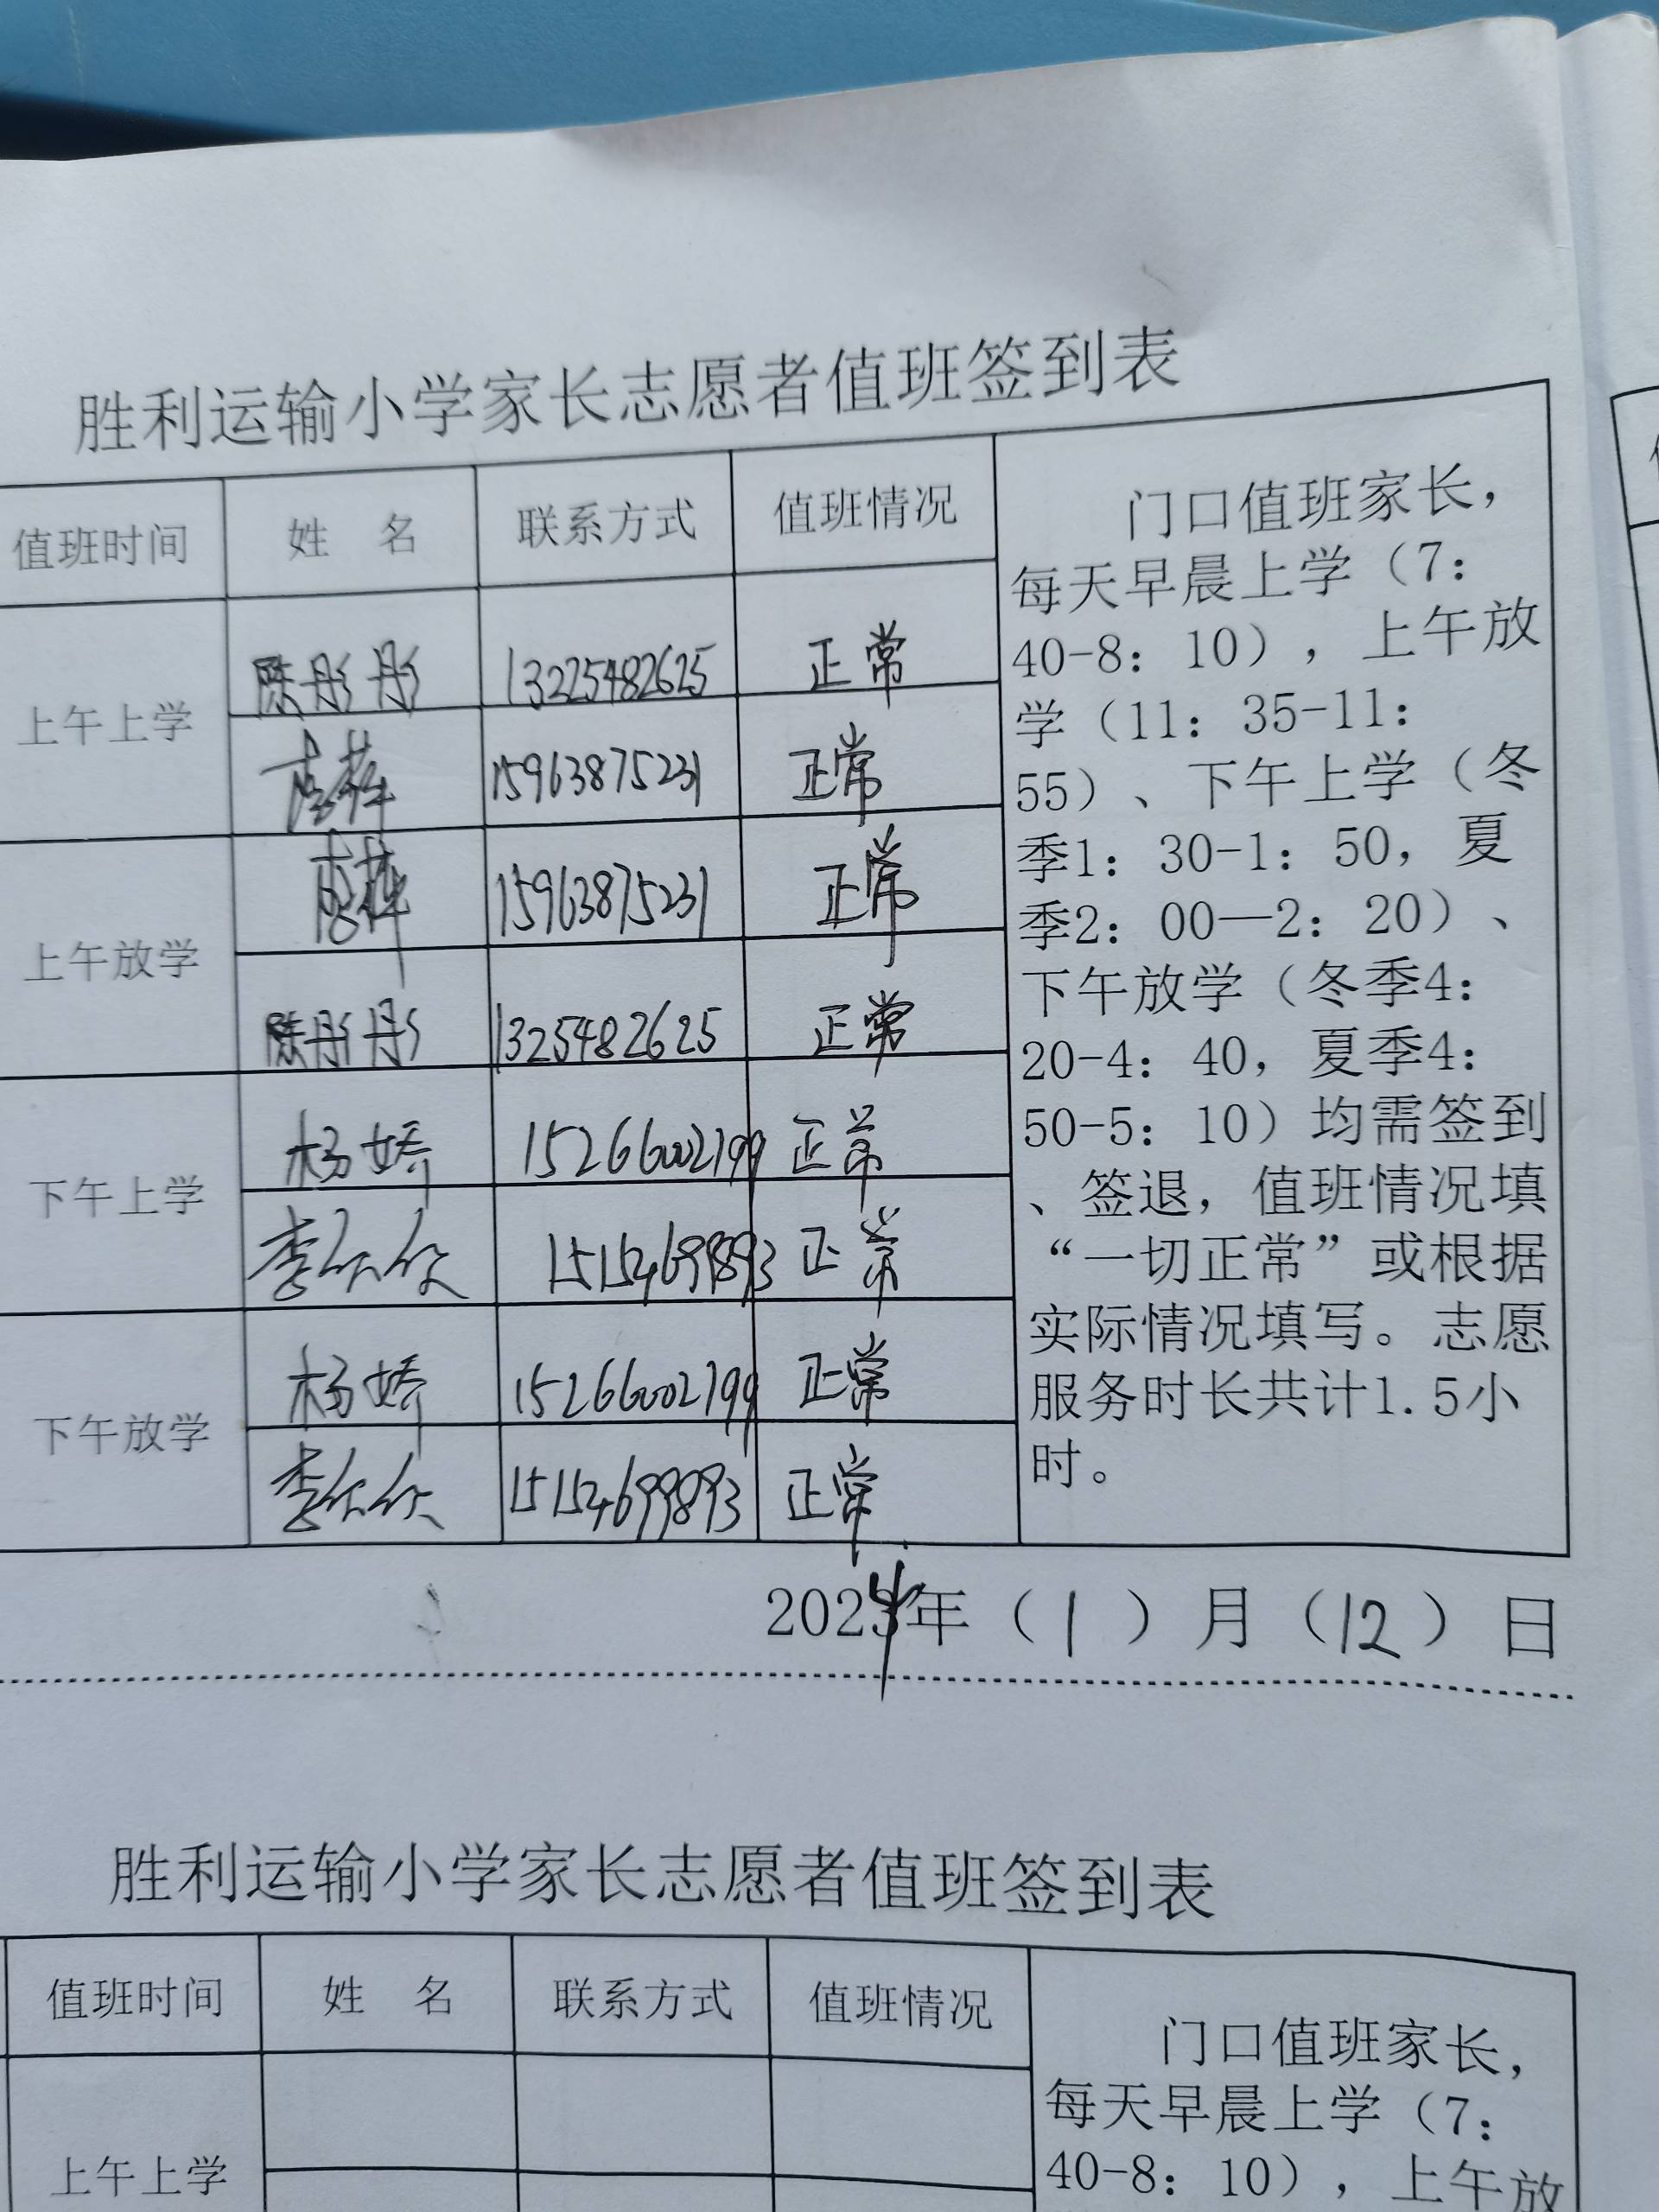 胜利运输小学家长志愿者值班签到表
值班时间 姓 名 联系方式 值班情况
上午上学
陈彤彤 13225482625 正常
15963875231 正常
上午放学
15963875231 正常
陈彤彤 1325482625 正常
下午上学
杨娇 15266002799 正常
李欣欣 15154699893 正常
下午放学
杨娇 15266002799 正常
李欣欣 15154699893 正常
门口值班家长，
每天早晨上学（7：
40-8：10），上午放
学（11：35-11：
55）、下午上学（冬
季1：30-1：50，夏
季2：00—2：20）、
下午放学（冬季4：
20-4：40，夏季4：
50-5：10）均需签到
、签退，值班情况填
“一切正常”或根据
实际情况填写。志愿
服务时长共计1.5小
时。
2024年（1）月（12）日
胜利运输小学家长志愿者值班签到表
值班时间 姓 名 联系方式 值班情况
上午上学
门口值班家长，
每天早晨上学（7：
40-8：10），上午放